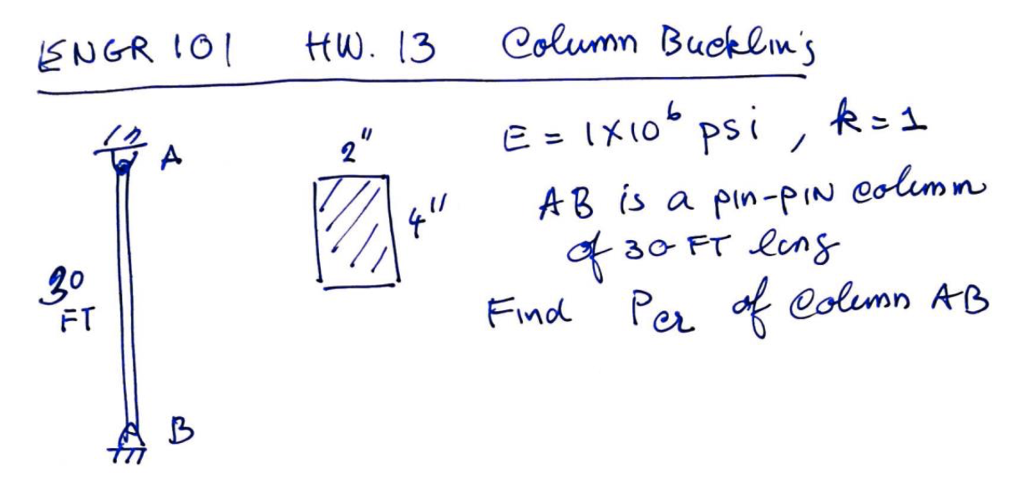 ENGR 101 HW. 13 Column Buckling
E = 1X10⁶ psi, k=1
A
2"
4"
AB is a pin-pin column
of 30 FT long
30
FT
Find Pcr of Column AB
B